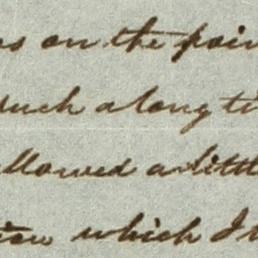 on the poin
such a long ti
allowed a little
which I